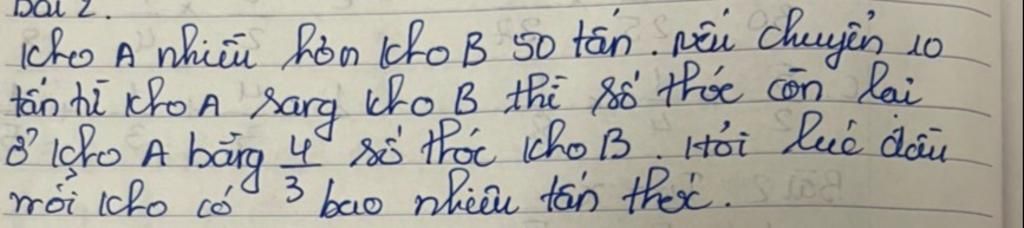 Bài 2.
kho A nhiều hơn kho B 50 tấn. nếu chuyển 10
tấn từ kho A sang kho B thì số thóc còn lại
ở kho A bằng 4/3 số thóc kho B. Hỏi lúc đầu
mỗi kho có bao nhiêu tấn thóc.